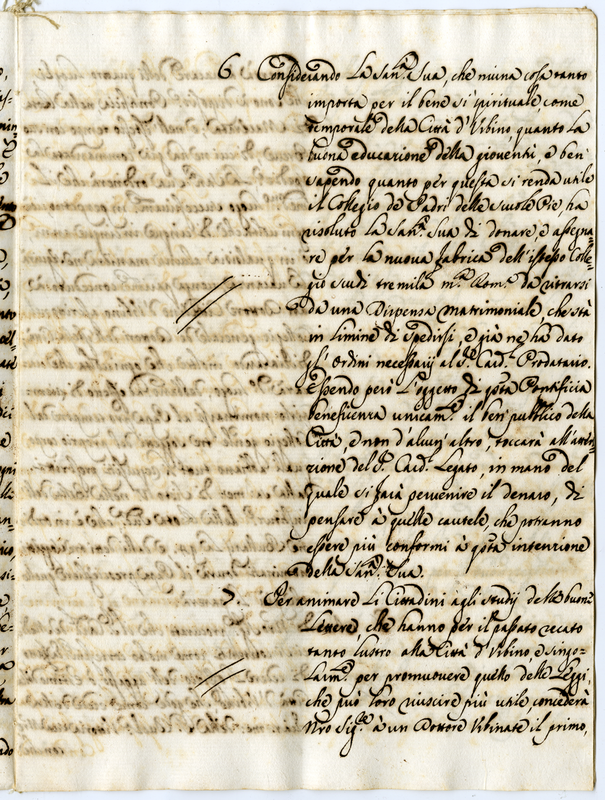 6. Considerando La San.ta Sua, che niuna cosa tanto
importa per il bene sì spirituale, come
temporale della Città d'Urbino quanto La
buona educazione della gioventù, e ben
sapendo quanto per questa si renda utile
il Collegio de Padri delle scuole Pie, ha
risoluto La San.tà Sua di donare, e assegna-
re per la nuova fabrica dell'istesso Colle-
gio scudi tremila m.ta Rom.a da ritrarsi
da una Dispensa matrimoniale, che stà
in limine di spedirsi, e già ne ha dato
gl'ordini necessarij al S.r Card.l Prodatario.
Essendo però L'oggetto di q̃sta Pontificia
beneficenza unicam.te il ben pubblico della
Città, e non d'alcun'altro, toccarà all'atten-
zione del S.r Card.l Legato, in mano del
quale si farà pervenire il denaro, di
pensare à quelle cautele, che potranno
essere più conformi à q̃sta intenzione
della San.tà Sua.
7. Per animare Li Cittadini agli studij delle buone
Lettere, che hanno per il passato recato
tanto lustro alla Città d'Urbino e singo-
larm.te per promuovere quello delle Leggi,
che può loro riuscire più utile, concederà
Nr̃o Sig.re à un Dottore Urbinate il primo,